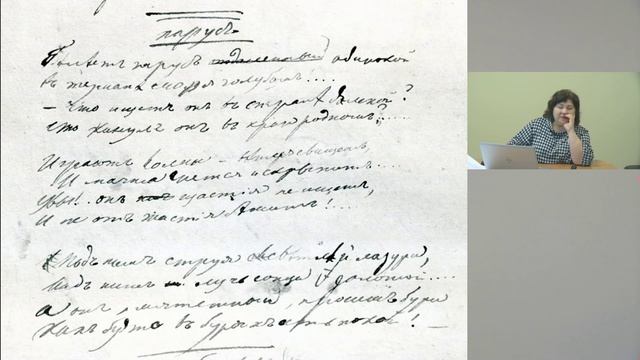 парусъ
Бѣлѣетъ парусъ отдаленный одинокой
въ туманѣ моря голубомъ....
– Что ищетъ онъ въ странѣ далекой?
что кинулъ онъ въ краю родномъ?....
Играютъ волны – вѣтеръ свищетъ,
И мачта гнется и скрыпитъ....
Увы! онъ счастія не ищетъ,
И не отъ счастія бѣжитъ!....
Подъ нимъ струя свѣтлѣй лазури,
Надъ нимъ лучь солнца золотой....
а онъ, мятежный, проситъ бури
Какъ будто въ буряхъ есть покой!